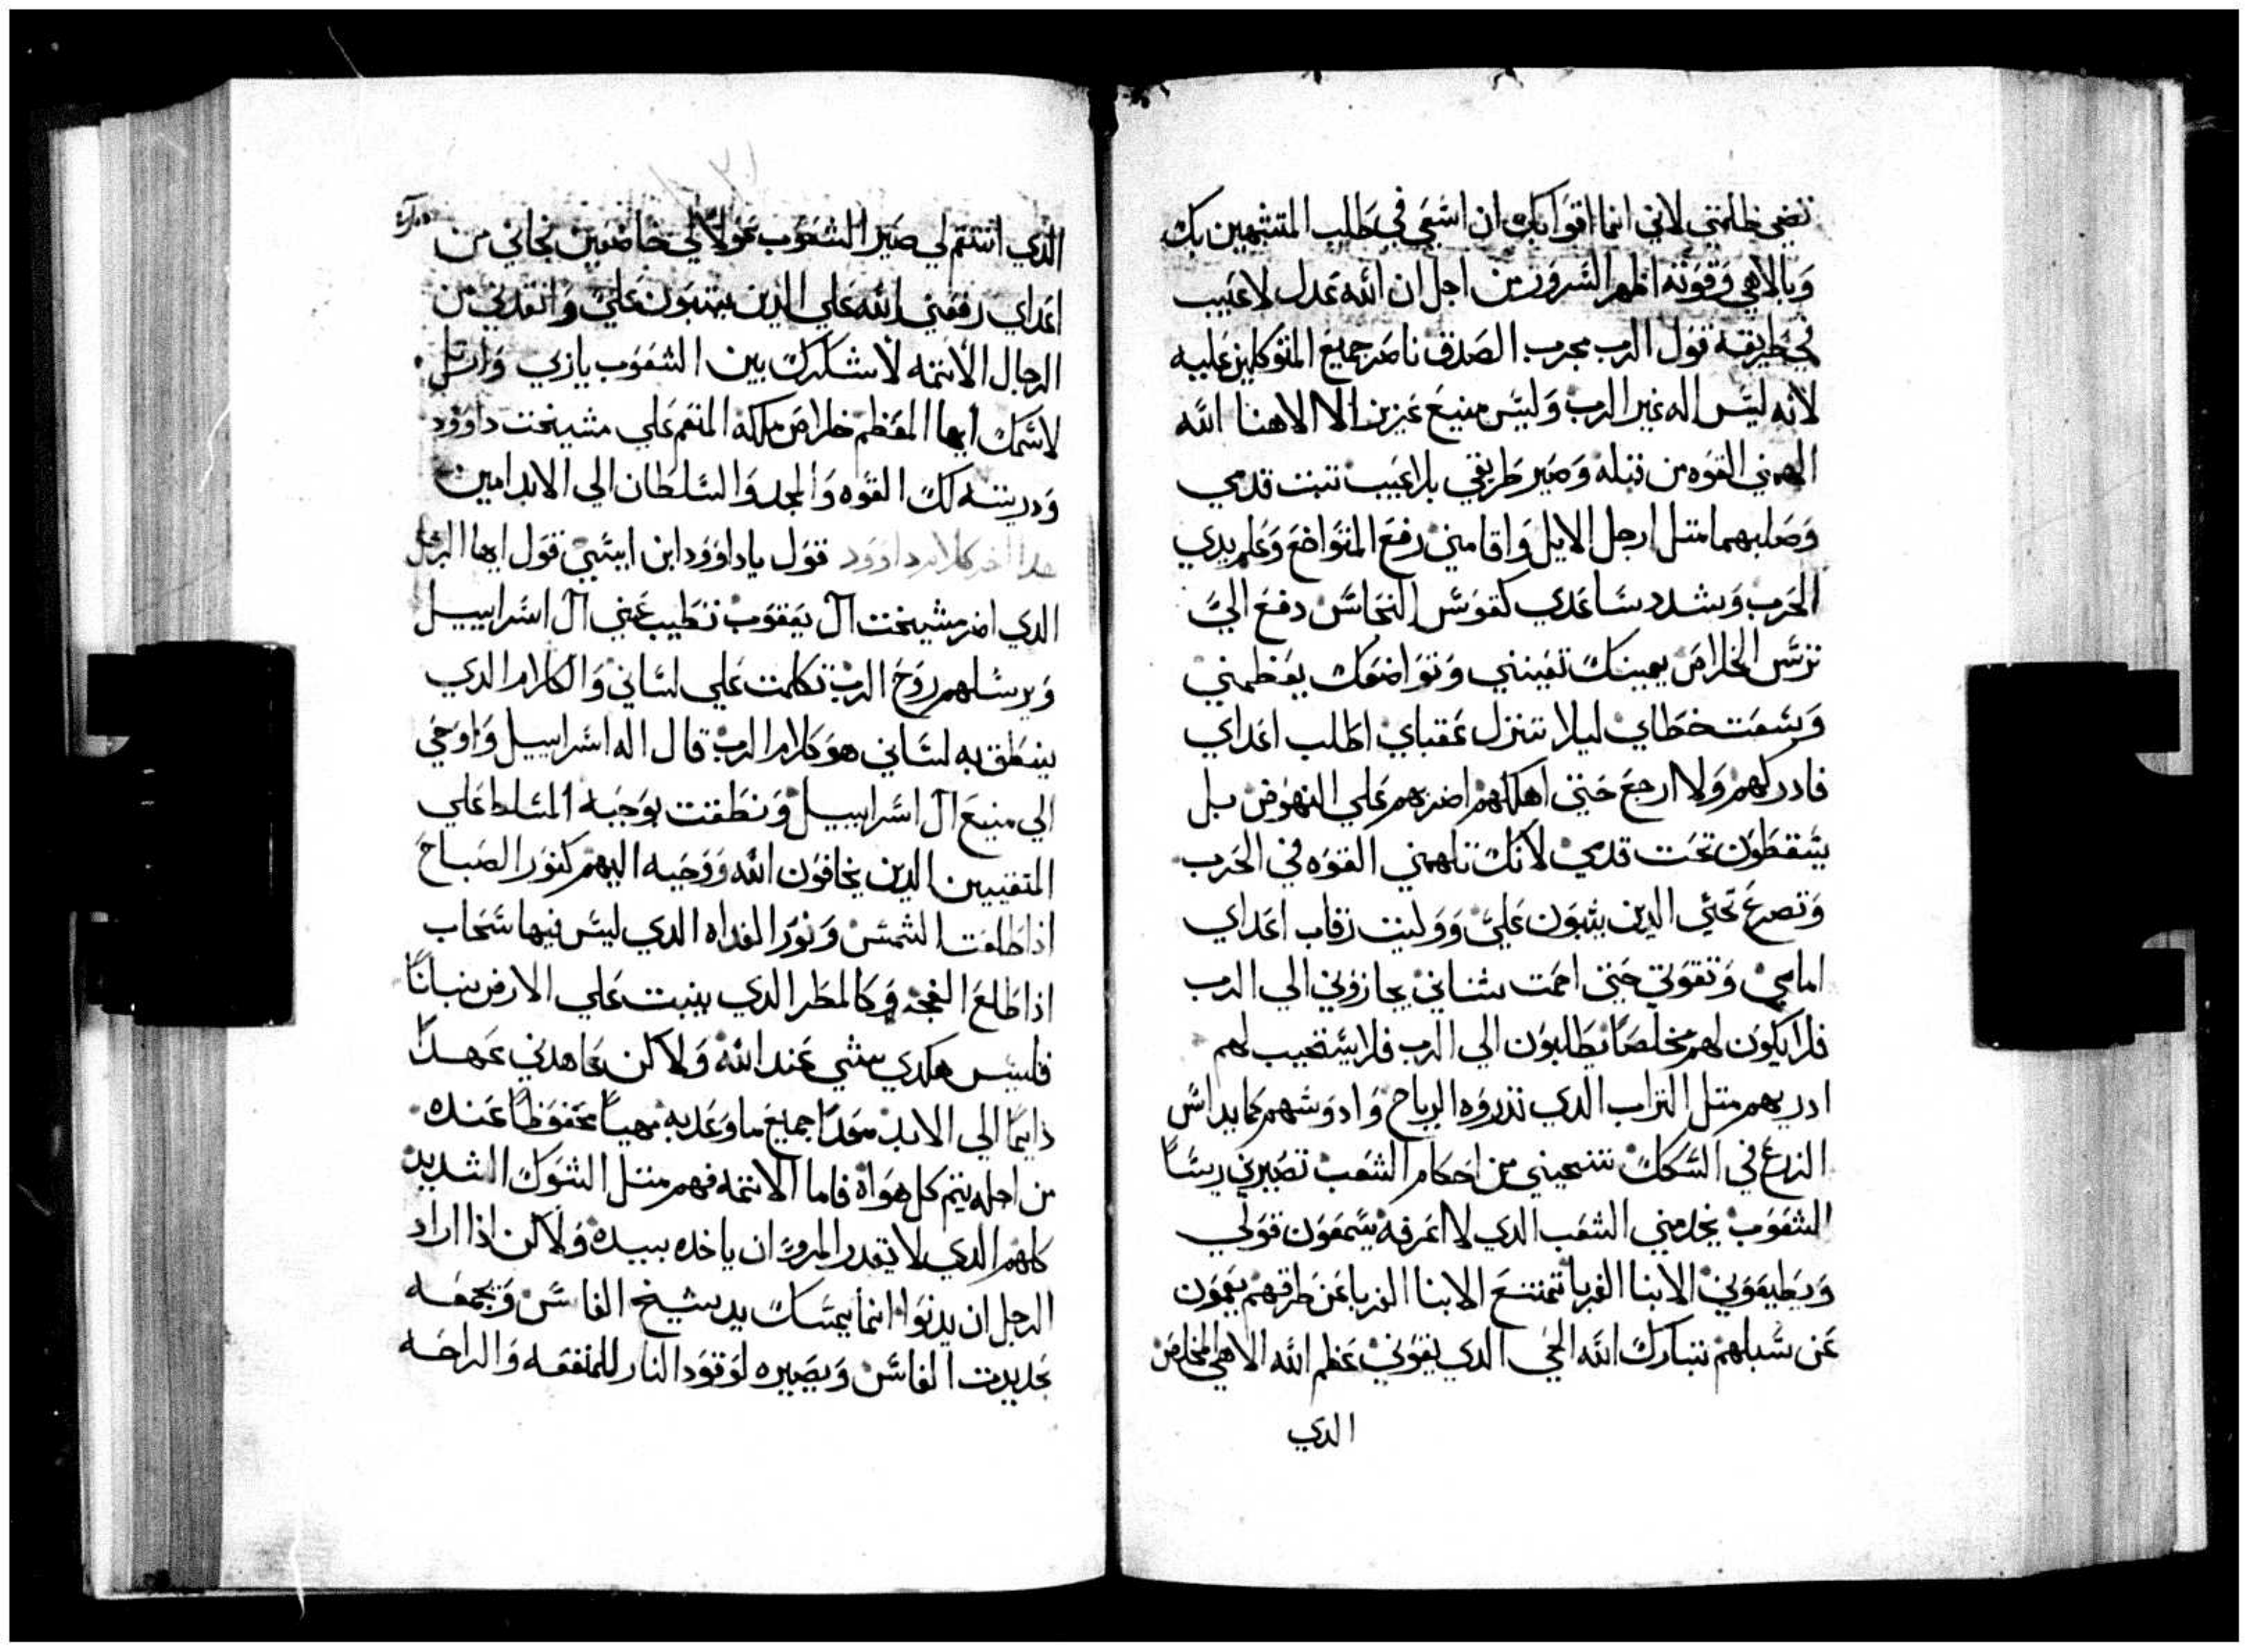 تضي ظلمتي لاني انما اقوا بك ان اسعي في طلب المتشبهين بك
وبالاهي وقوته اظهر السرور من اجل ان الله عدل لا عيب
في طريقة قول الرب مجرب الصدق ناصر جميع المتوكلين عليه
لانه ليس اله غير الرب وليس منيع عزيز الا الاهنا الله
الهمني القوه من قبله وصير طريقي بلا عيب تبت قدمي
وصلبهما متل ارجل الايل واقامني رفع المتواضع وعلم يدي
الحرب وشدد ساعدي كقوس النحاس دفع الي
ترس الخلاص يمينك تعينني وتواضعك يعظمني
وسعت خطاي ليلا تنزل عقباي اطلب اعداي
فادركهم ولا ارجع حتي اهلكهم اضربهم علي النهوض بل
يسقطون تحت قدمي لانك تلهمني القوه في الحرب
وتصرع تحتي الدين يتبون علي ووليت رقاب اعداي
امامي وتقوتي حتي احمت شناني يجازوني الي الرب
فلا يكون لهم مخلصا يطلبون الي الرب فلا يستجيب لهم
ادريهم متل التراب الدي تذروه الرياح وادوسهم كما يداس
الزرع في السكك تنجيني من احكام الشعب تصيرني ريسا
الشعوب يخدمني الشعب الدي لا اعرفه يسمعون قولي
ويطيعوني الابنا الغربا تمتنع الابنا الغربا عن طرقهم يعمون
عن سبلهم تبارك الله الحي الدي يقوني عظم الله الاهي المخلص
الدي
الدي انتقم لي صير الشعوب خولا لي خاضعين نجاني من
اعداي رفعني الله علي الدين يتبون علي وانقدني من
الرجال الاتمه لاشكرك بين الشعوب يازي وارتل
لاسمك ايها المعظم خلاص ملكه المنعم علي مشيخت داوود
ودريته لك القوه والمجد والسلطان الي الابد امين
هدا اخر كلام داوود قول ياداوود ابن ايسي قول ايها الرجل
الدي اضر مشيخت ال يعقوب تطيب غني ال اسراييل
ويرسلهم روح الرب تكلمت علي لساني والكلام الدي
ينطق به لساني هو كلام الرب قال اله اسراييل واوحي
الي منيع ال اسراييل ونطقت بوجبه المسلط علي
المتقيين الدين يخافون الله ووجبه اليهم كنور الصباح
اذا طلعت الشمس ونور الغداه الدي ليس فيها سحاب
اذا طلع الفجر وكالمطر الدي ينبت علي الارض نباتا
فليس هكدي بيتي عند الله ولاكن عاهدني عهدا
دايما الي الابد معدا جميع ما وعد به مهيا محفوظا عنده
من اجله يتم كل هواه فاما الاتمه فهم متل الشوك الشديد
كلهم الدي لا يقدر المرو ان ياخده بيده ولاكن اذا اراد
الرجل ان يدنوا انما يمسك بيد سيخ الفاس ويجمعه
بحديدت الفاس ويصيره لوقود النار للمنفعه والراحه